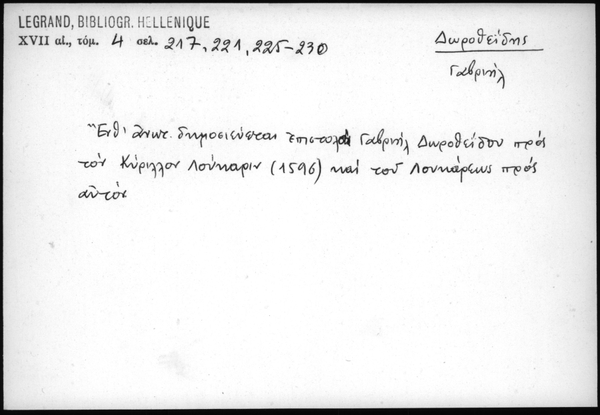 LEGRAND, BIBLIOGR. HELLENIQUE
XVII αἰ., τόμ. 4 σελ. 217, 221, 225-230
Δωροθεΐδης
Γαβριήλ
Ἔνθ' ἀνωτ. δημοσιεύεται ἐπιστολὴ Γαβριήλ Δωροθεΐδου πρός
τὸν Κύριλλον Λούκαριν (1596) καὶ τοῦ Λουκάρεως πρός
αὐτόν